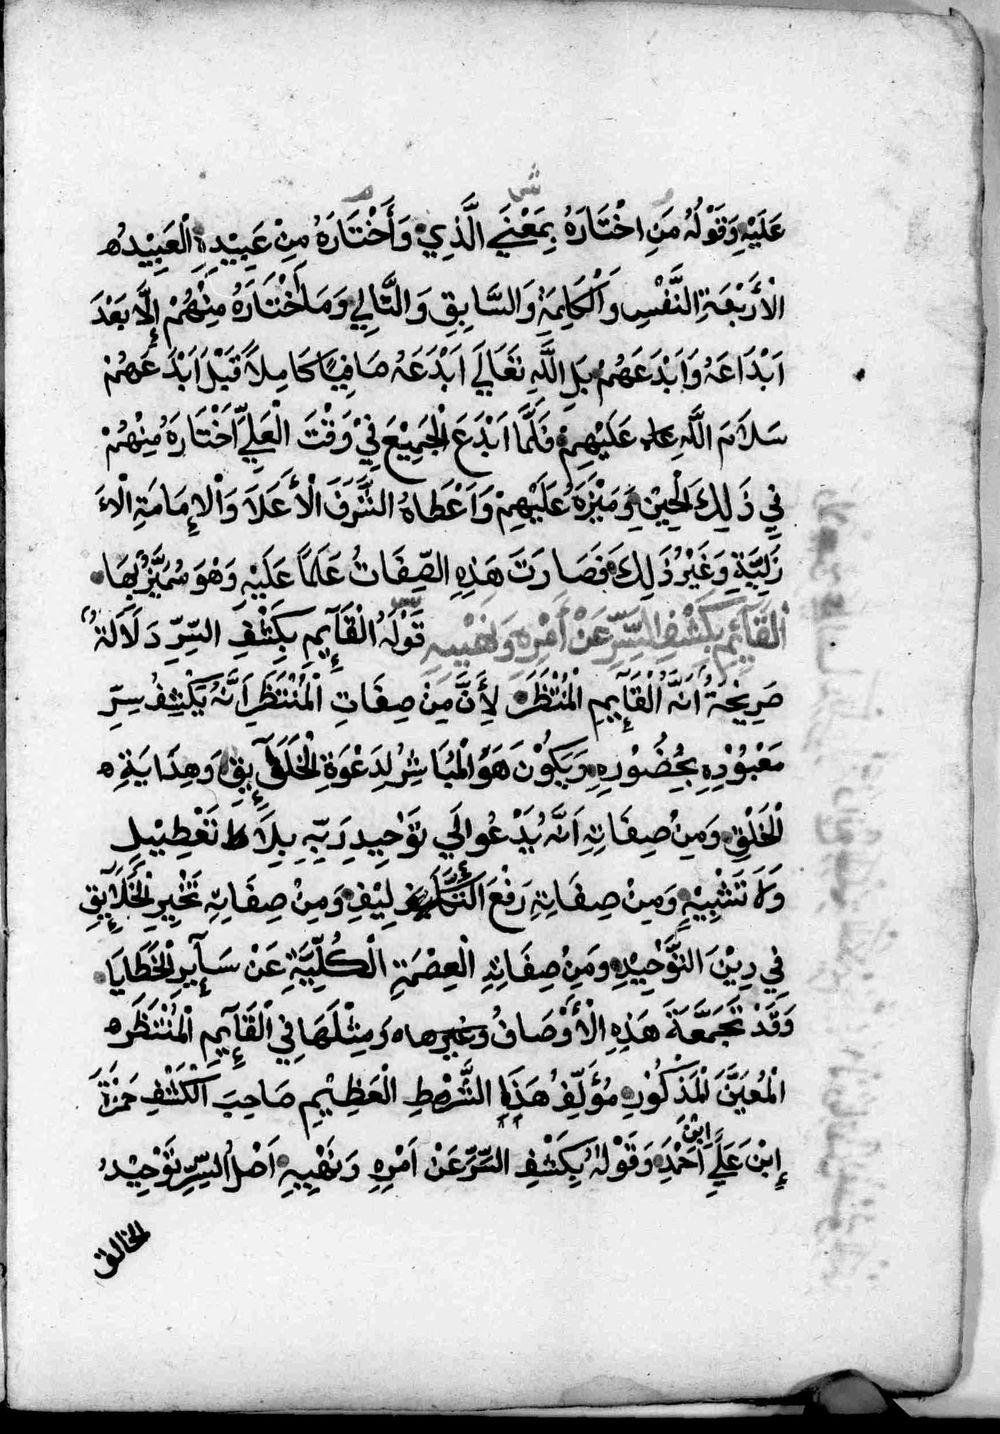 ش
عَلَيْهِ وَقَوْلُهُ مَنِ اخْتَارَهُ بِمَعْنَي الَّذِي وَأَخْتَارَهُ مِنْ عَبِيْدِهِ الْعَبِيْدُ
الْأَرْبَعَةِ النَّفْسِ وَالْكَلِمَةِ وَالسَّابِقِ وَالتَّالِي وَمَا اَخْتَارَهُ مِنْهُمْ إِلَّا بَعْدَ
اَبْدَاعَهُ وَاَبْدَعَهُمْ بَلِ اللَّهِ تَعَالَي اَبْدَعَهُ صَافِيًا كَامِلاً قَبْلَ اَبْدَعَهُمْ
سَلَامَ اللَّهِ عَلَيْهِمْ فَلَمَّا اَبْدَعَ الْجَمِيْعَ فِيْ وَقْتَ الْعَلِيِّ اَخْتَارَهُ مِنْهُمْ
فِي ذَلِكَ الْحِيْنِ وَمَيْزَهُ عَلَيْهِمْ وَاَعْطَاهُ الشَّرَفَ الْأَعَلَا وَالْإِمَامَةِ الْاَ
زَلِيَّةِ وَغَيْرُ ذَلِكَ فَصَارَتَ هَذِهِ الصِّفَاتُ عَلَماً عَلَيْهِ وَهْوَ مُمَيَّزٌ بُهَا
الْقَآئِمِ بِكَشْفِ السِّرِّ عَنْ أَمْرِهِ وَنَهْيِهِ قَوْلُهُ الْقَآئِمِ بِكَشْفِ السِّرِّ دَلَالَةٌ
صَرِيْحَةٌ اَنَّهُ الْقَآئِمِ الْمُنْتَظَرِ لِأَنَّ مِنْ صِفَاتِ الْمُنْتَظَرِ اَنَّهُ يَكْشِفُ سِرِّ
مَعْبُوْدِهِ بِحُضُوْرِهِ وَيَكُوْنَ هَوَ الْمُبَاشِرُ لِدَعْوَةِ الْخَلَآئِقِ وَهِدَايَةِ
الْخَلْقِ وَمِنْ صِفَاتِهِ اَنَّهُ يَدْعُوا اِلَي تَوْحِيدِ رَبِّهِ بِلَا تَعْطِيْلِ
وَلَا تَشْبِيْهٍ وَمِنْ صِفَاتِهِ رَفْعَ التَّكَالِيْفِ وَمِنْ صِفَاتِهِ تَخْيِيرِ الْخَلَآئِقِ
فِي دِيْنَ التَّوْحِيْدِ وَمِنْ صِفَاتِهِ الْعِصْمَةِ الْكُلِّيَّةِ عَنْ سَآئِرِ الْخَطَايَا
وَقَدْ تَجَمَّعَةَ هَذِهِ الْأَوْصَافُ وغيرها وَمِثْلَهَا فِي الْقَآئِمِ الْمُنْتَظَرِ
الْمُعَيَّنَ الْمَذْكُوْرِ مُؤَلِّفُ هَذَا الشَّرْطِ الْعَظِيْمِ صَاحِبَ الْكَشْفِ حَمْزَةَ
إِبْنَ عَلَيِّ اِبْنَ اَحْمَدِ وَقَوْلُهُ بِكَشْفِ السِّرِّ عَنْ اَمْرِهِ وَنَهْيِهِ اَصْلُ السِّرِّ تَوْحِيْدُ
الخالق